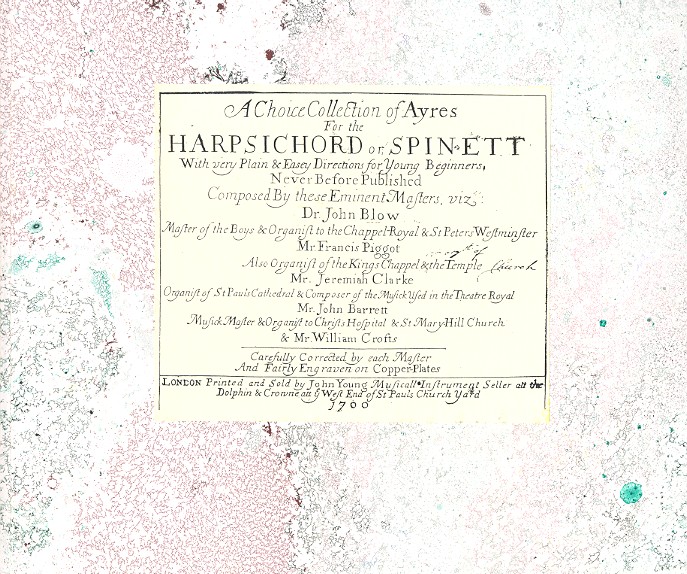 A Choice Collection of Ayres
For the
HARPSICHORD or SPINETT
With very Plain & Easey Directions for Young Beginners,
Never Before Published
Composed By these Eminent Masters, viz:
Dr. John Blow
Master of the Boys & Organist to the Chappel-Royal & St Peters Westminster
Mr. Francis Piggot
Also Organist of the Kings Chappel & the Temple Church
Mr. Jeremiah Clarke
Organist of St Pauls Cathedral & Composer of the Musick Used in the Theatre Royal
Mr. John Barrett
Musick Master & Organist to Christs Hospital & St Mary-Hill Church
& Mr. William Crofts
Carefully Corrected by each Master
And Fairly Engraven on Copper-Plates
LONDON Printed and Sold by John Young Musicall Instrument Seller att the
Dolphin & Crowne att ye West End of St Pauls Church Yard
1700